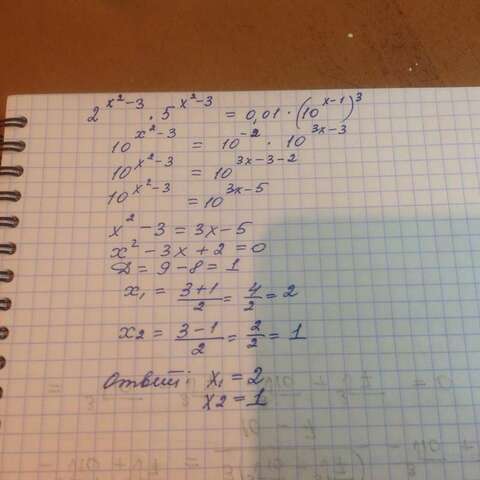 2^(x²-3) · 5^(x²-3) = 0,01 · (10^(x-1))³
10^(x²-3) = 10^(-2) · 10^(3x-3)
10^(x²-3) = 10^(3x-3-2)
10^(x²-3) = 10^(3x-5)
x² - 3 = 3x - 5
x² - 3x + 2 = 0
Д = 9 - 8 = 1
x₁ = (3+1)/2 = 4/2 = 2
x₂ = (3-1)/2 = 2/2 = 1
Ответ: x₁ = 2
x2 = 1